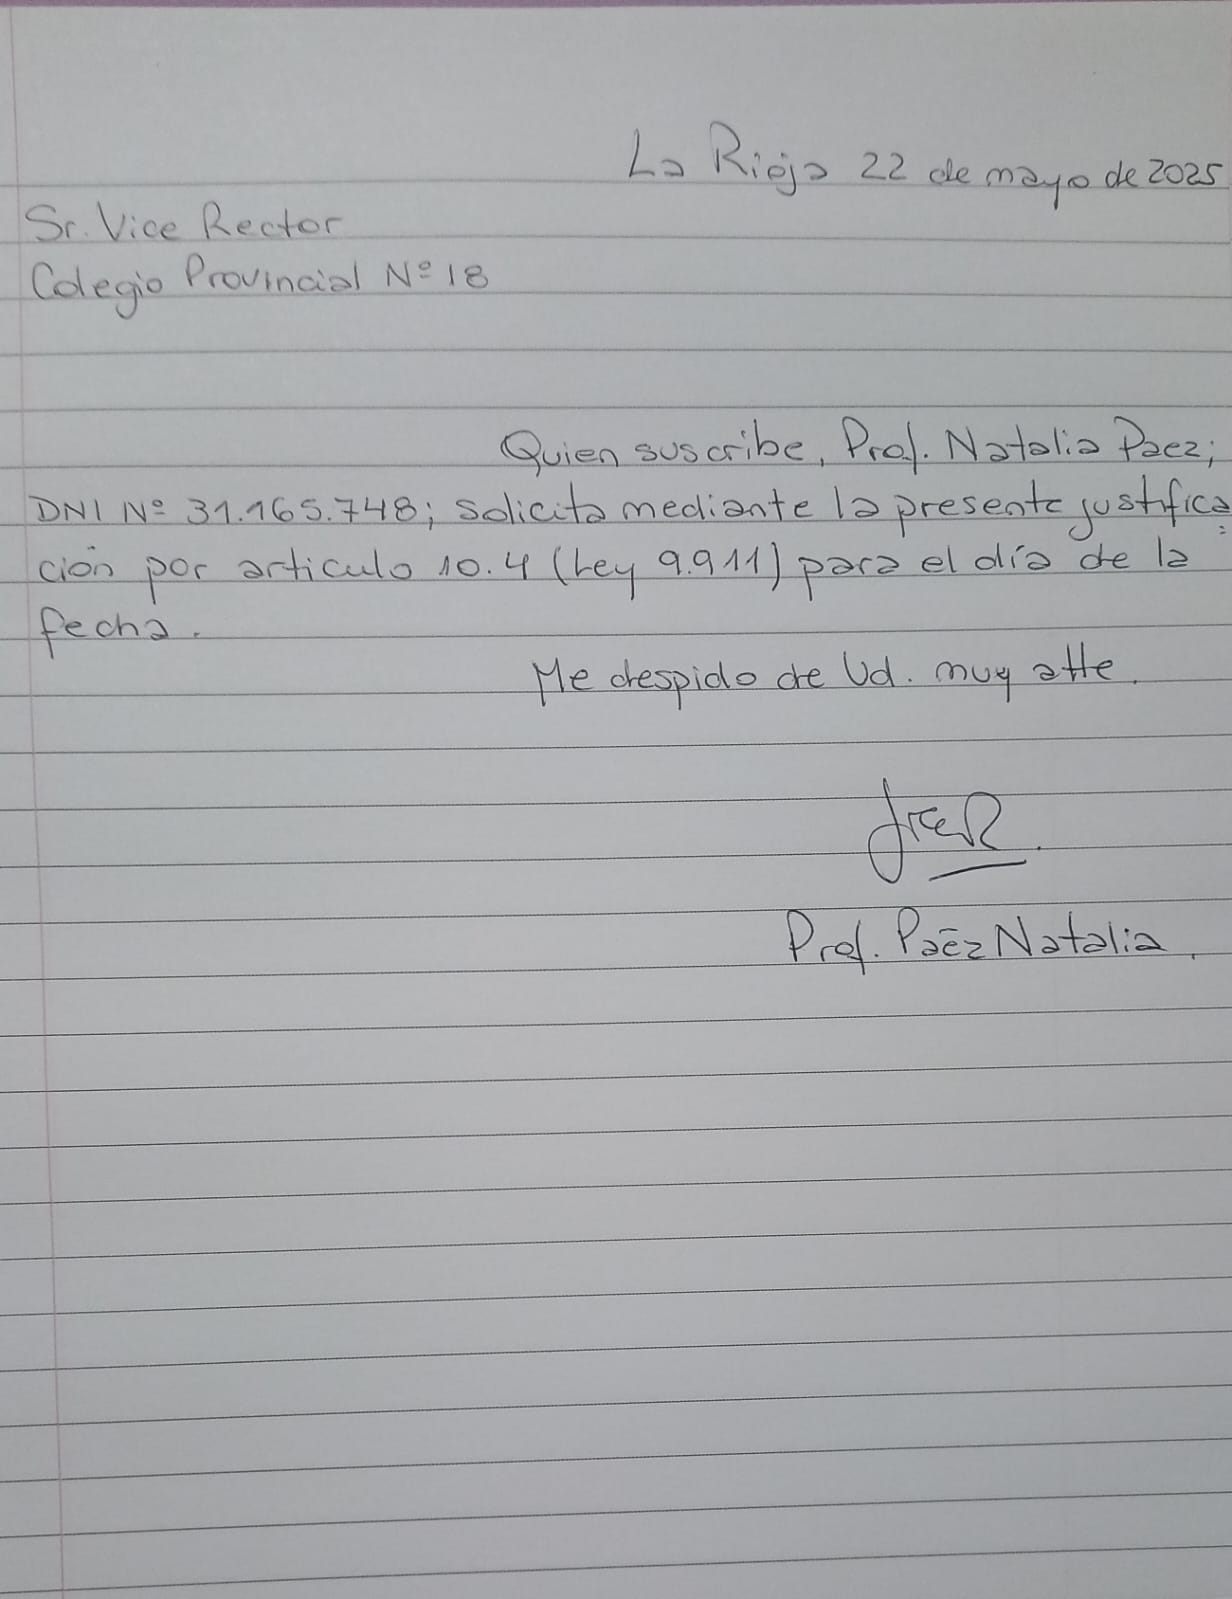 La Rioja 22 de mayo de 2025
Sr. Vice Rector
Colegio Provincial Nº 18
Quien suscribe, Prof. Natalia Paez;
DNI Nº 31.165.748; solicita mediante la presente justifica
ción por articulo 10.4 (Ley 9.911) para el día de la
fecha.
Me despido de Ud. muy atte.
Prof. Paéz Natalia.